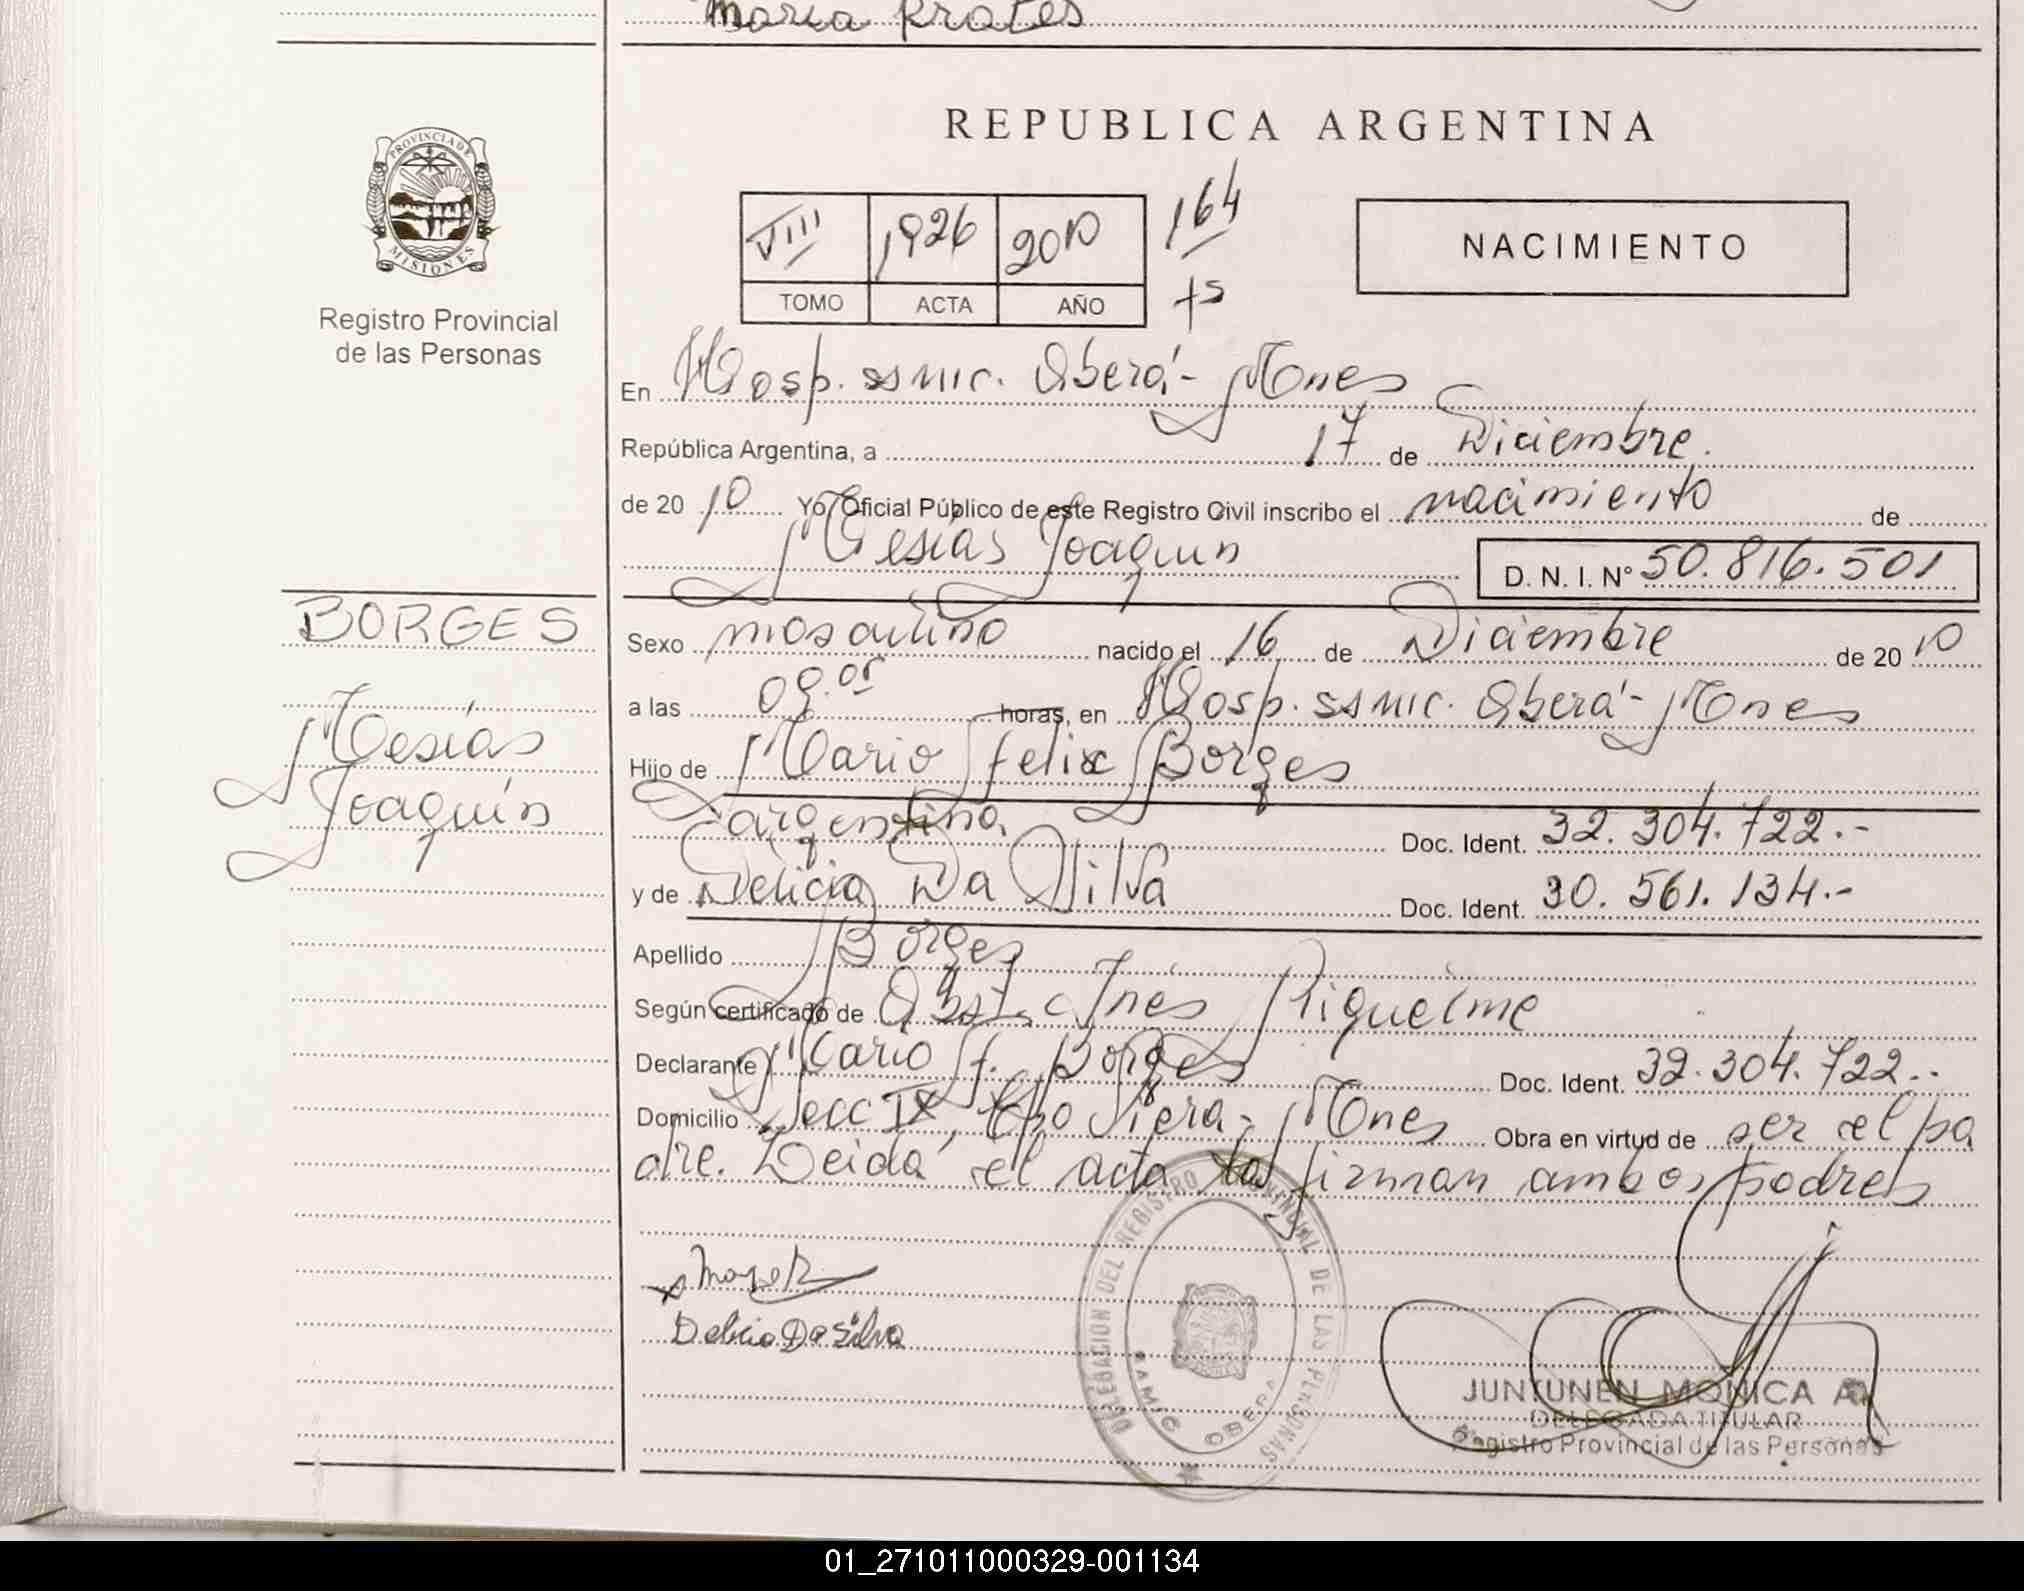 Maria Prates
REPUBLICA ARGENTINA
PROVINCIA DE
MISIONES
Registro Provincial
de las Personas
VIII 1926 2010 164
TOMO ACTA AÑO
NACIMIENTO
En Hosp. ssmic. Oberá - Mones
República Argentina, a 17 de Diciembre.
de 20 10 Yo, Oficial Público de este Registro Civil inscribo el nacimiento de
Mesías Joaquín
D. N. I. Nº 50.816.501
BORGES
Mesías
Joaquín
Sexo masculino nacido el 16 de Diciembre de 20 10
a las 09.05 horas, en Hosp. ssmic. Oberá - Mones
Hijo de Mario Felix Borges
argentino, Doc. Ident. 32.304.722.-
y de Delicia Da Silva Doc. Ident. 30.561.134.-
Apellido Borges
Según certificado de Obst. Inés Riquelme
Declarante Mario F. Borges Doc. Ident. 32.304.722.-
Domicilio Secc IX, Cpo Viera - Mones Obra en virtud de ser el pa
dre. Leída el acta la firman ambos padres
Delicia Da Silva
DELEGACION DEL REGISTRO PROVINCIAL DE LAS PERSONAS
SAMIC OBERA
JUNTUNEN MONICA A.
DELEGADA TITULAR
Registro Provincial de las Personas
01_271011000329-001134